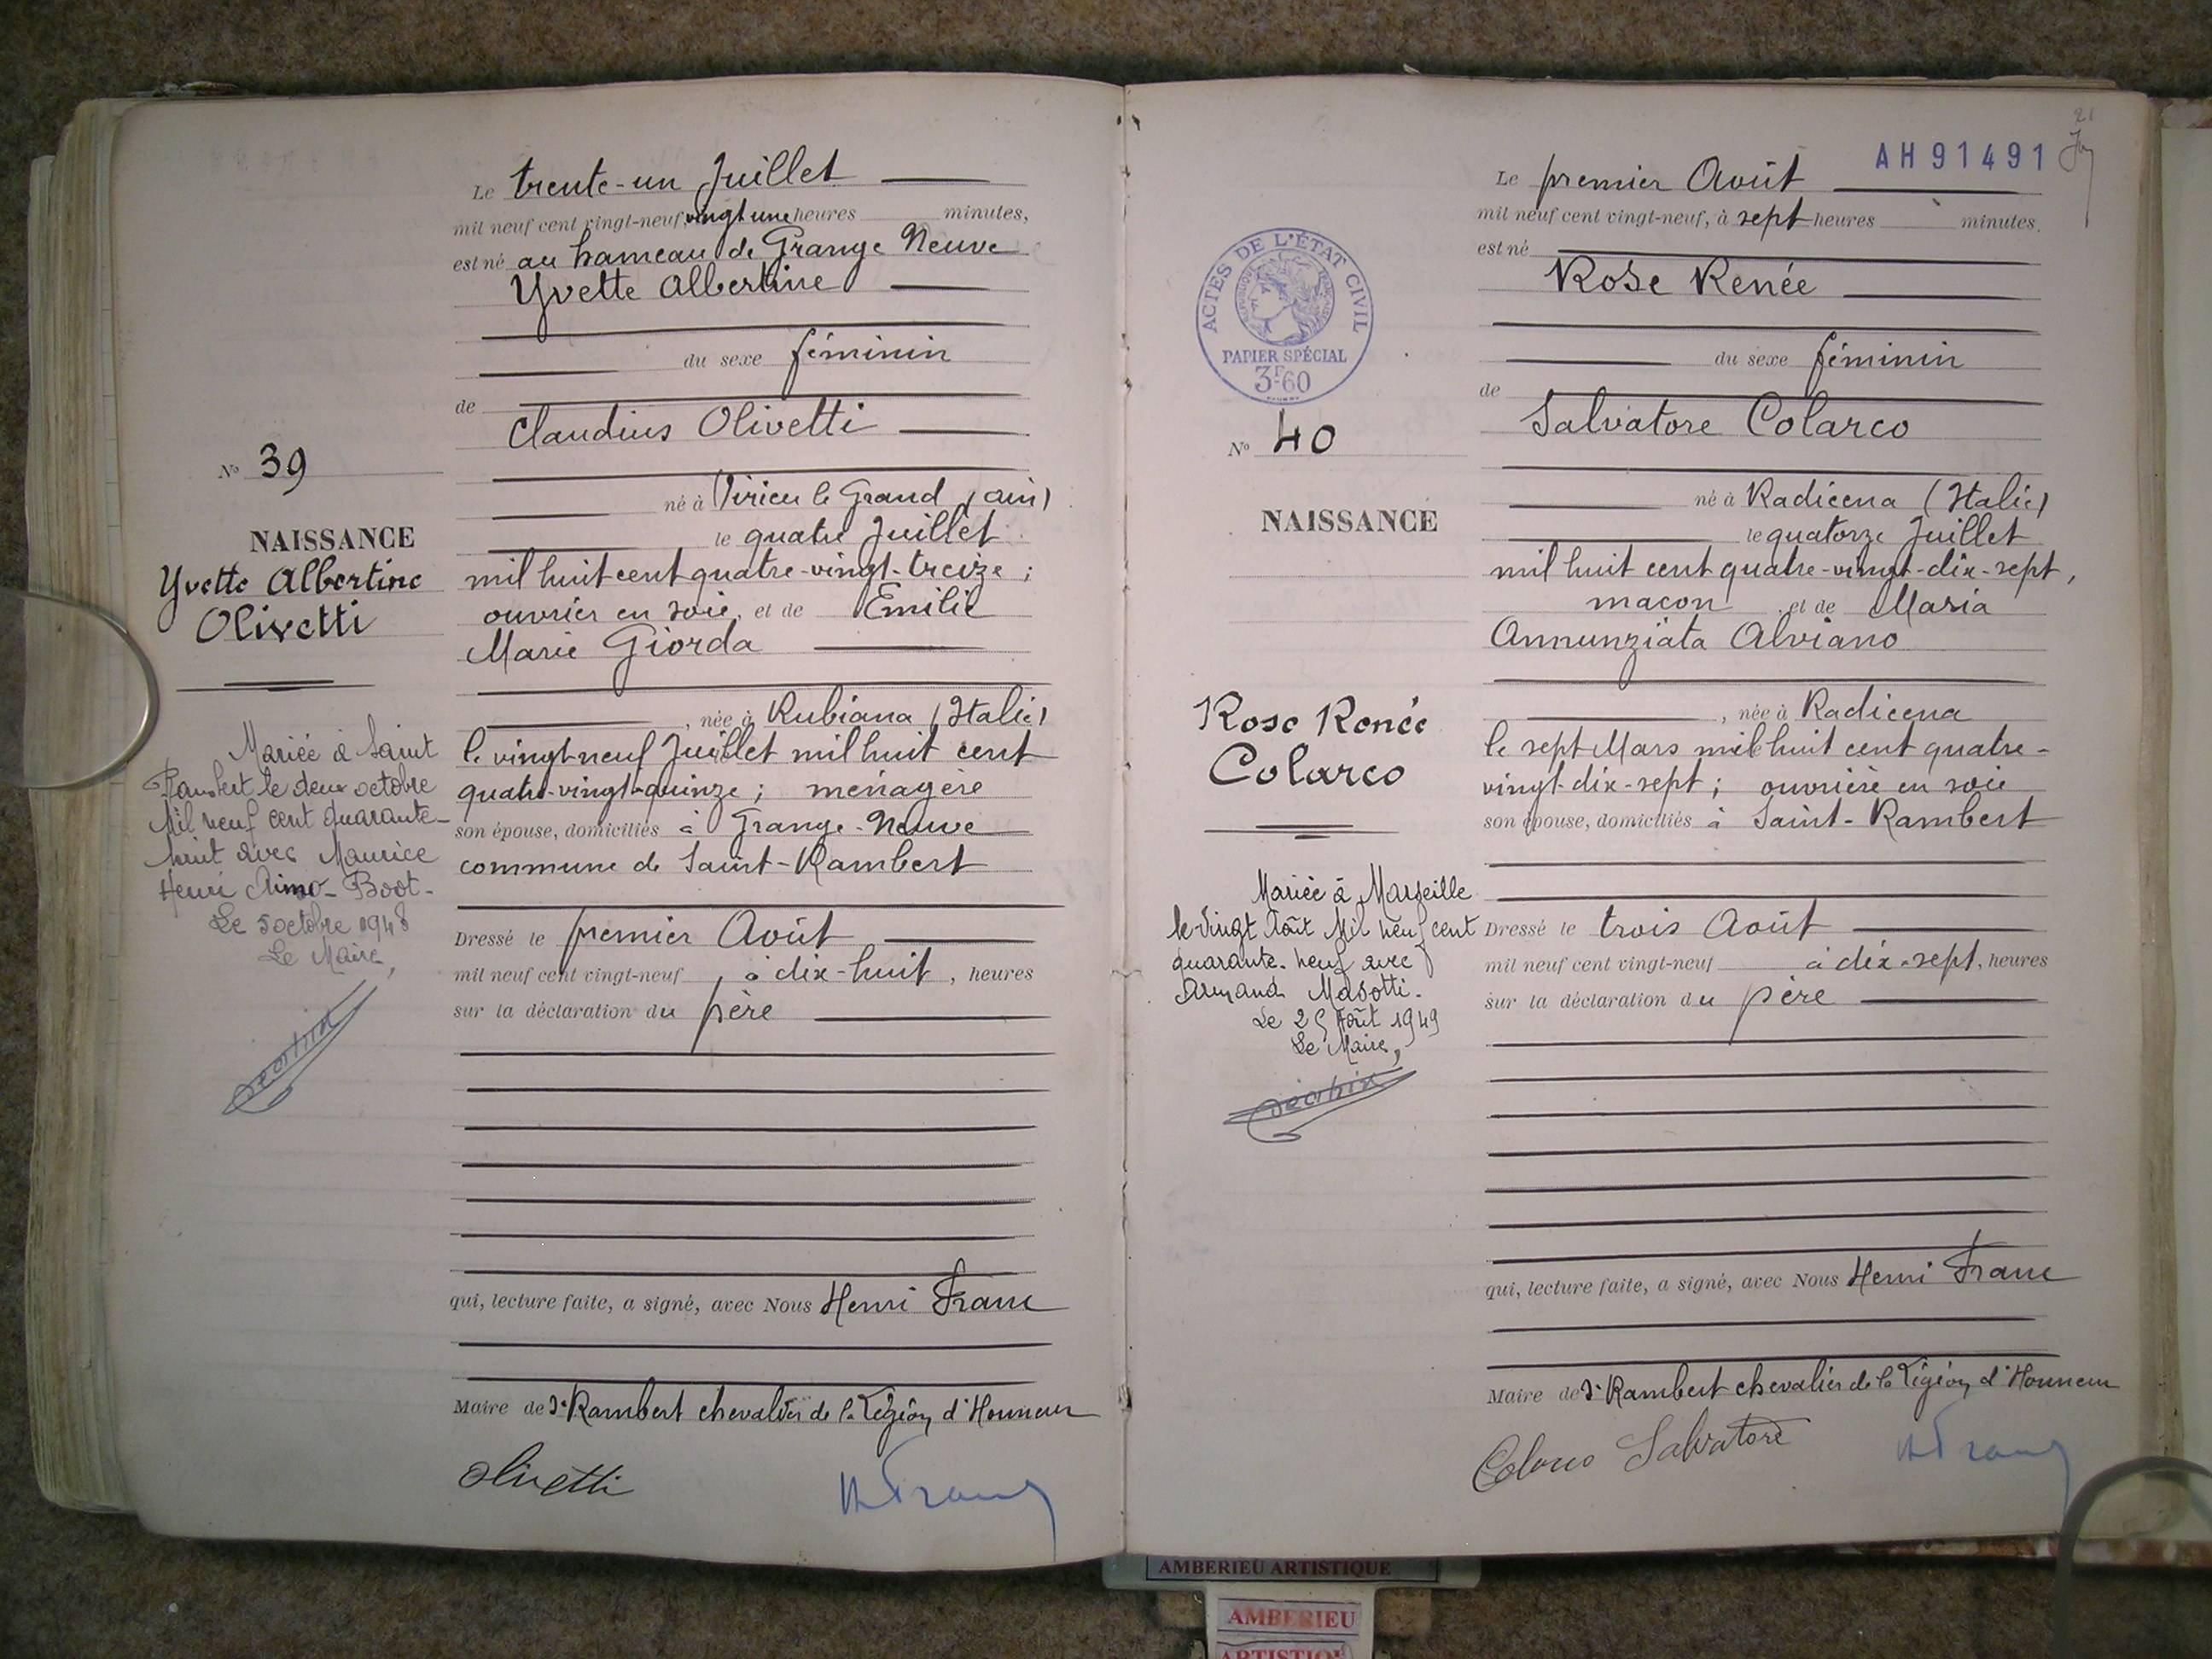 Le trente-un Juillet
mil neuf cent vingt-neuf, vingt une heures minutes,
est né au hameau de Grange Neuve
Yvette Albertine
du sexe féminin
de
Claudius Olivetti
N° 39
né à Virieu le Grand (Ain)
NAISSANCE
le quatre Juillet
Yvette Albertine
Olivetti
mil huit cent quatre-vingt-treize ;
ouvrier en soie, et de Emilie
Marie Giorda
, née à Rubiana (Italie)
le vingt-neuf Juillet mil huit cent
quatre-vingt-quinze ; ménagère
son épouse, domiciliés à Grange-Neuve
commune de Saint-Rambert
Mariée à Saint
Rambert le deux octobre
Mil neuf cent quarante-
huit avec Maurice
Henri Aimo-Boot-
Le 5 octobre 1948
Le Maire,
Dressé le premier Août
mil neuf cent vingt-neuf , à dix-huit , heures
sur la déclaration du père
qui, lecture faite, a signé, avec Nous Henri Franc
Maire de St Rambert chevalier de la Légion d'Honneur
Olivetti
H Franc
21
AH91491
Le premier Août
mil neuf cent vingt-neuf, à sept heures minutes.
est né
Rose Renée
ACTES DE L'ÉTAT CIVIL
PAPIER SPÉCIAL
3F60
du sexe féminin
de
Salvatore Colarco
N° 40
né à Radicena (Italie)
NAISSANCE
le quatorze Juillet
mil huit cent quatre-vingt-dix-sept,
macon , et de Maria
Annunziata Alviano
Rose Renée
Colarco
, née à Radicena
le sept Mars mil huit cent quatre-
vingt-dix-sept ; ouvrière en soie
son épouse, domiciliés à Saint-Rambert
Mariée à Marseille
le vingt Août Mil neuf cent
quarante-neuf avec
Armand Masotti.
Le Août 1949
Le Maire,
Dressé le trois Août
mil neuf cent vingt-neuf à dix-sept, heures
sur la déclaration du père
qui, lecture faite, a signé, avec Nous Henri Franc
Maire de St Rambert chevalier de la Légion d'Honneur
Colarco Salvatore
H Franc
AMBERIEU ARTISTIQUE
AMBERIEU
ARTISTIQUE